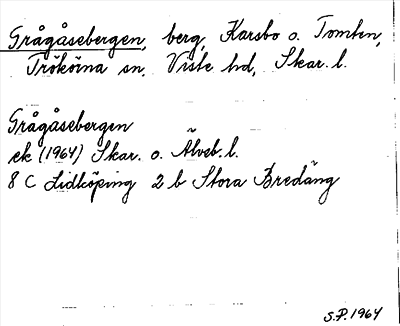 Grågåsebergen, berg, Karsbo o. Tomten,
Trökörna sn, Viste hd, Skar. l.
Grågåsebergen
ek (1964) Skar. o. Älvsb. l.
8 C Lidköping 2 b Stora Bredäng
S.P. 1964